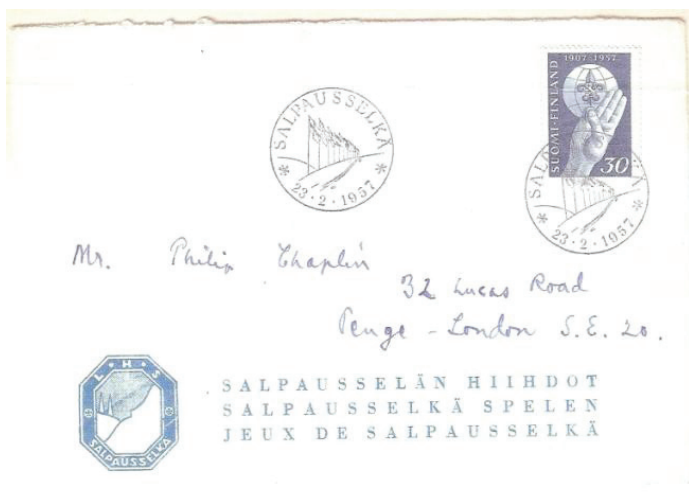 SALPAUSSELKÄ
23·2·1957
1907 1957
SUOMI-FINLAND
30
SALPAUSSELKÄ
23·2·1957
Mr. Philip Chaplin
32 Lucas Road
Penge - London S.E. 20.
L·H·S
SALPAUSSELKÄ
SALPAUSSELÄN HIIHDOT
SALPAUSSELKÄ SPELEN
JEUX DE SALPAUSSELKÄ